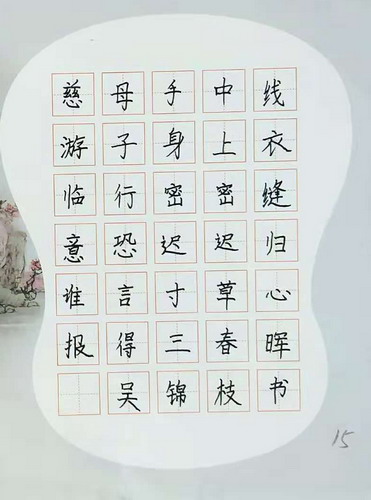 慈母手中线
游子身上衣
临行密密缝
意恐迟迟归
谁言寸草心
报得三春晖
吴锦枝书
15